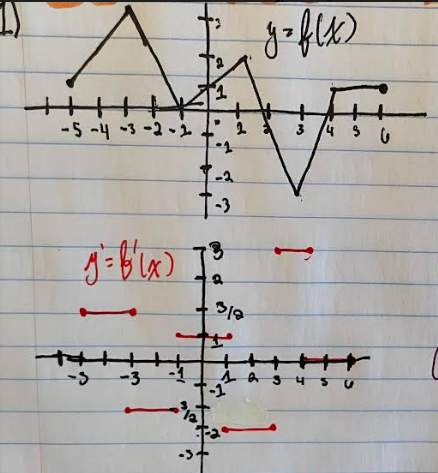 1)
3
y = f(x)
2
1
-5 -4 -3 -2 -1 1 2 3 4 5 6
-1
-2
-3
3
y' = f'(x)
2
3/2
1
-5 -3 -1 1 2 3 4 5 6
-1
-3/2
-2
-3
(